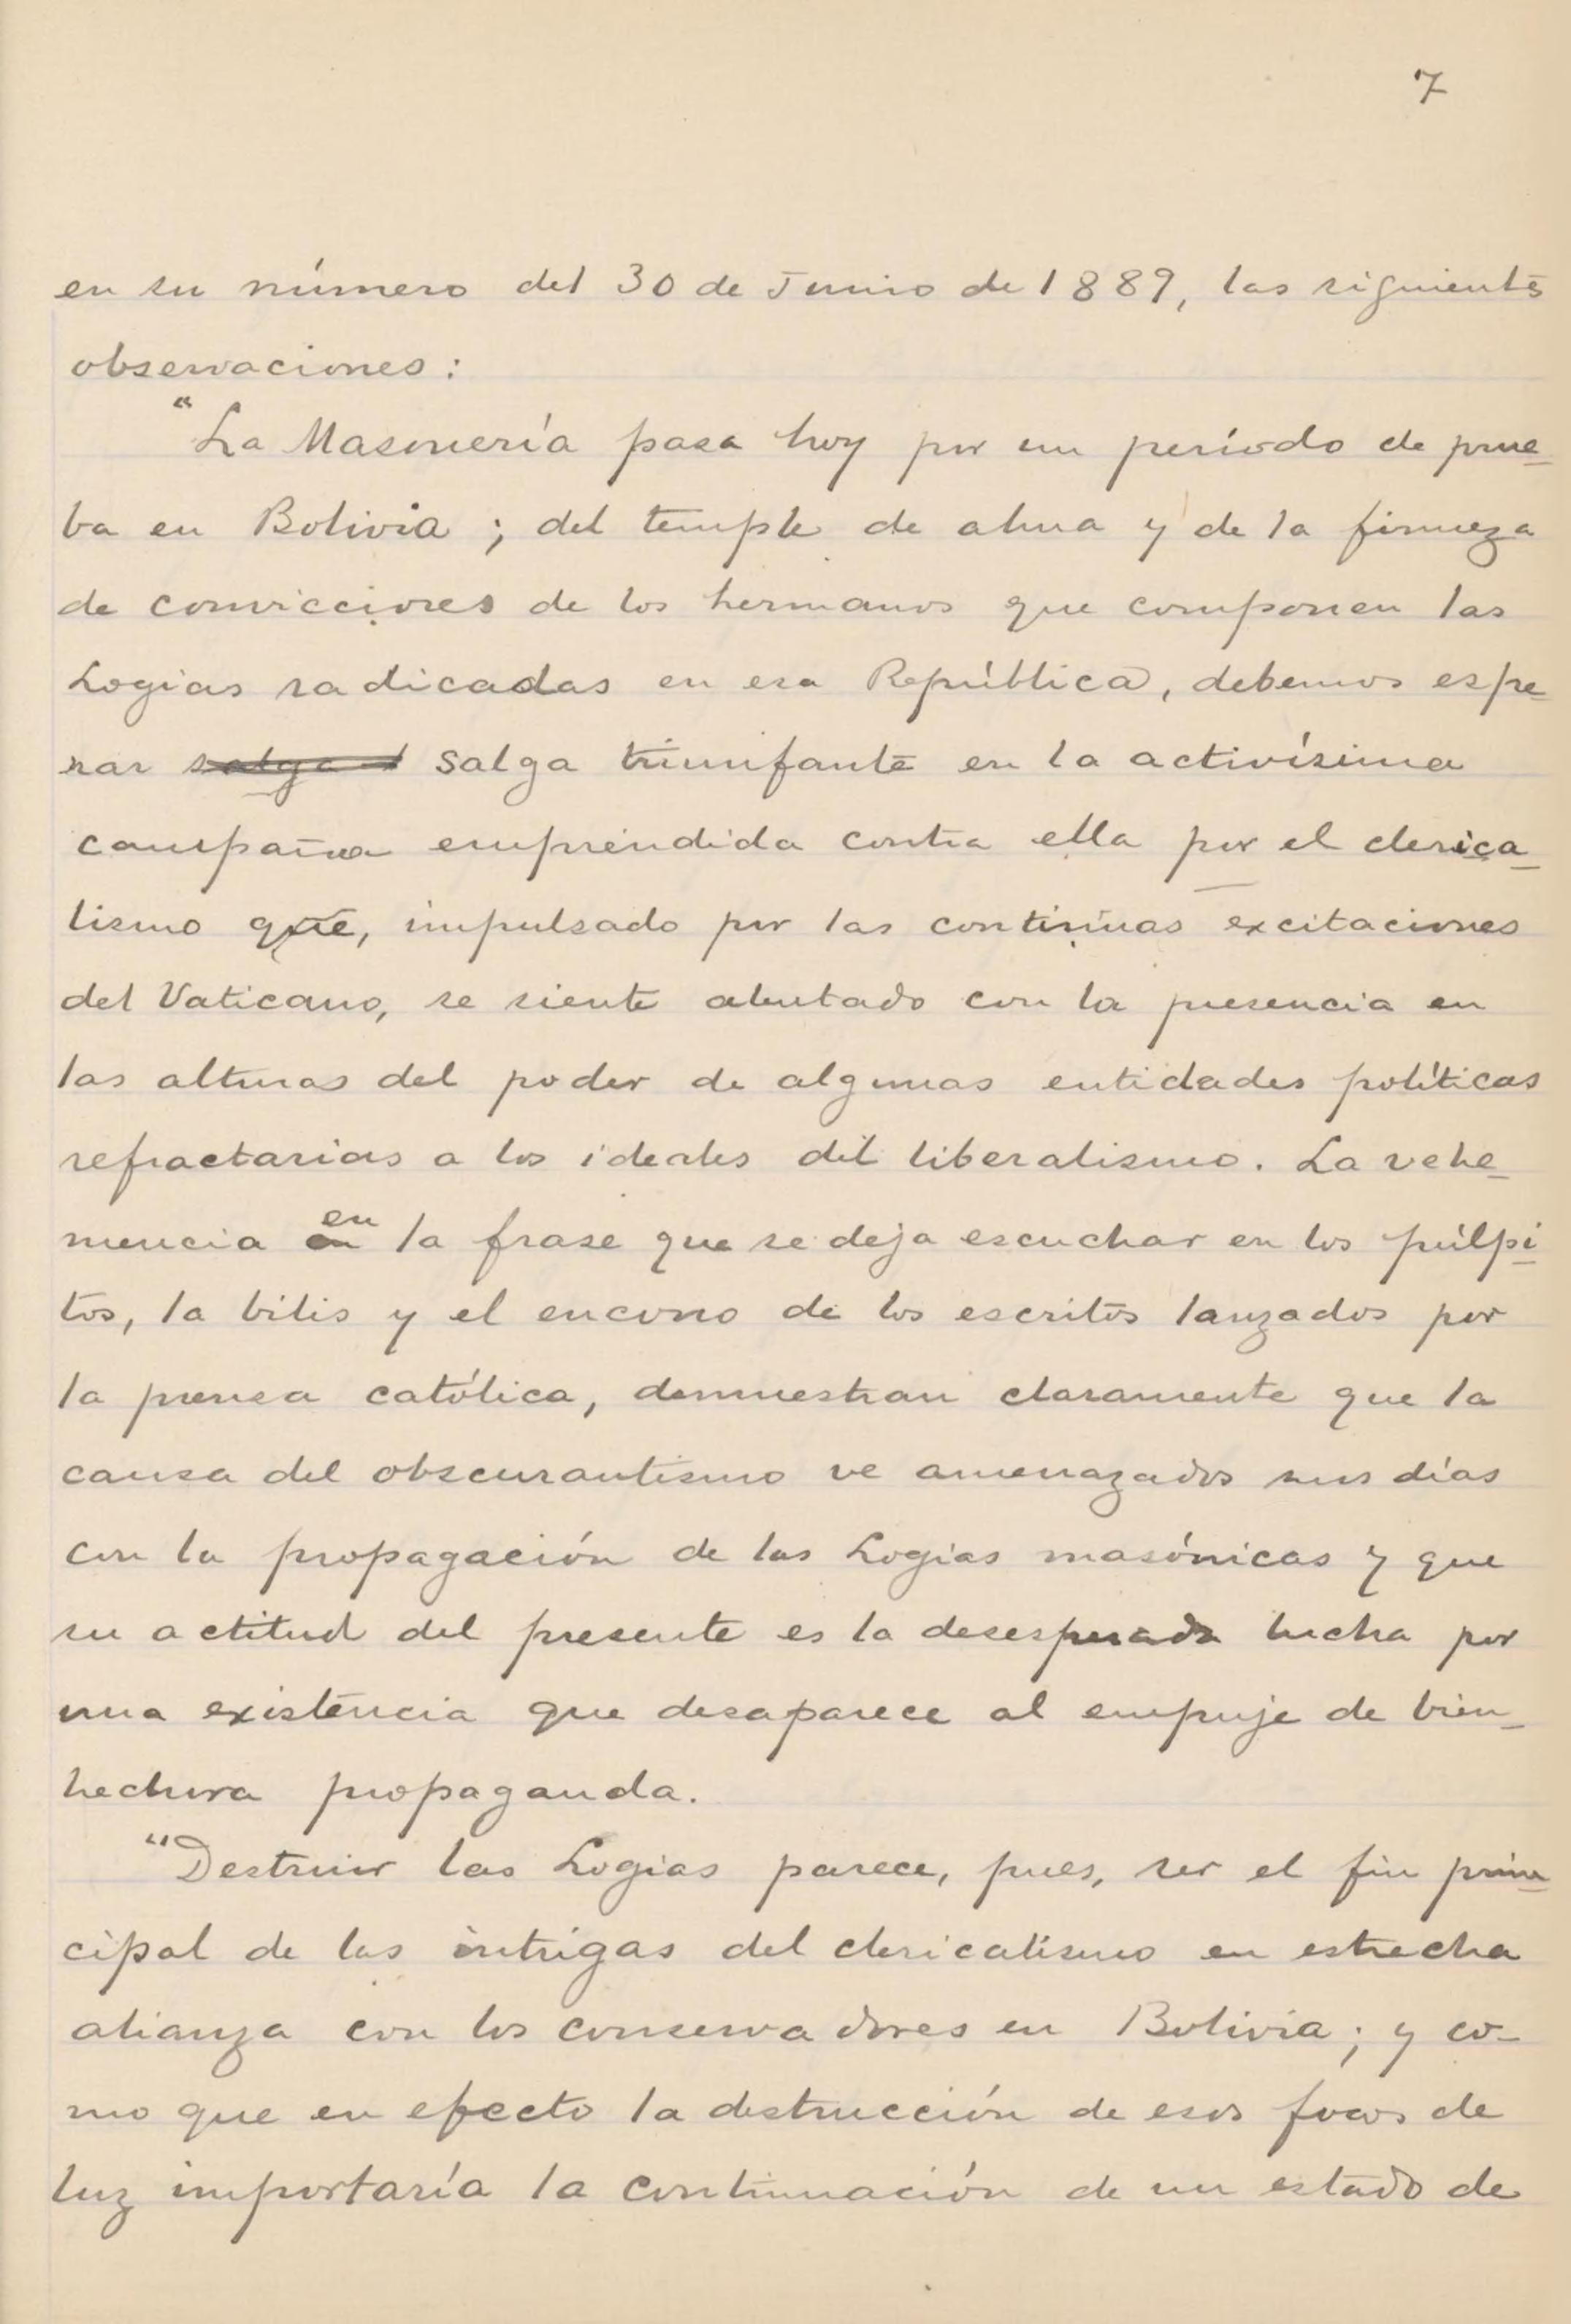 7
en su número del 30 de Junio de 1889, las siguientes
observaciones:
"La Masonería pasa hoy por un período de prue-
ba en Bolivia; del temple de alma y de la firmeza
de convicciones de los hermanos que componen las
Logias radicadas en esa República, debemos espe-
rar salga triunfante en la activísima
campaña emprendida contra ella por el clerica-
lismo que, impulsado por las continuas excitaciones
del Vaticano, se siente alentado con la presencia en
las alturas del poder de algunas entidades políticas
refractarias a los ideales del liberalismo. La vehe-
mencia en la frase que se deja escuchar en los púlpi-
tos, la bilis y el encono de los escritos lanzados por
la prensa católica, demuestran claramente que la
causa del obscurantismo ve amenazados sus días
con la propagación de las Logias masónicas y que
su actitud del presente es la desesperada lucha por
una existencia que desaparece al empuje de bien-
hechora propaganda.
"Destruir las Logias parece, pues, ser el fin prin-
cipal de las intrigas del clericalismo en estrecha
alianza con los conservadores en Bolivia; y co-
mo que en efecto la destrucción de esos focos de
luz importaría la continuación de un estado de